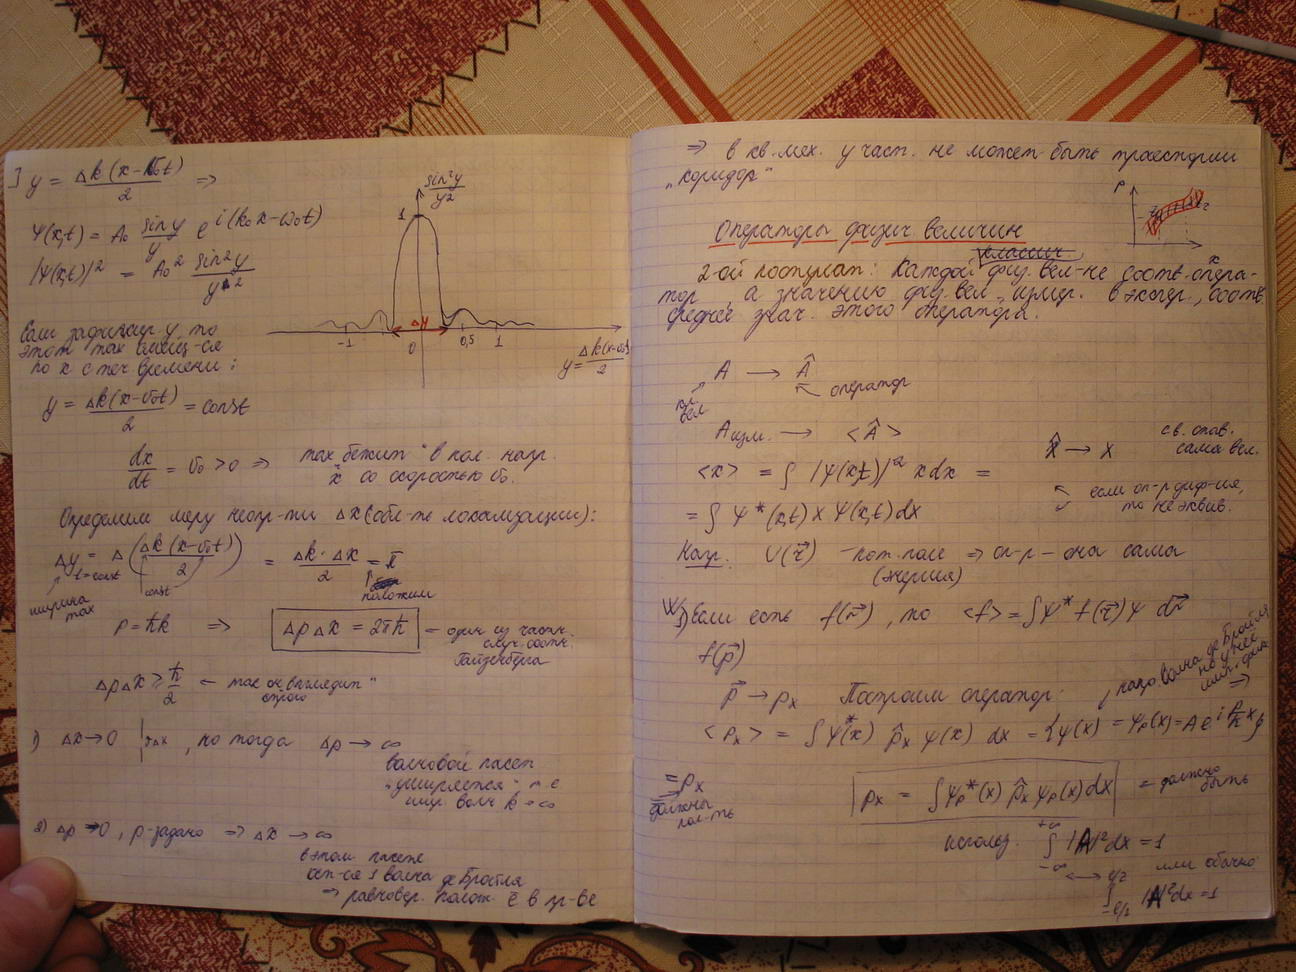 y = Δk(x-v₀t)/2 ⇒
Ψ(x,t) = A₀ sin y/y e^{i(k₀x-ω₀t)}
|Ψ(x,t)|² = A₀² sin²y/y²
sin²y/y²
1
Δy
-1 0 0,5 1
y = Δk(x-v₀t)/2
Если зафиксир. y, то
этот max смещ-ся
по x с теч. времени:
y = Δk(x-v₀t)/2 = const
dx/dt = v₀ > 0 ⇒ max „бежит" в пол. напр.
x со скоростью v₀.
Определим меру неопр-ти Δx (обл-ть локализации):
Δy t=const = Δ(Δk(x-v₀t)/2) = Δk·Δx/2 = π
ширина
max
const
положим
p = ħk ⇒ ΔpΔx = 2πħ – один из частн.
случ. соотн.
Гайзенберга
ΔpΔx ≥ ħ/2 ← так он выглядит
строго
1) Δx→0 Δx, но тогда Δp → ∞
волновой пакет
„уширяется" т.е.
k → ∞
2) Δp→0, p-задано ⇒ Δx → ∞
в этом пакете
ост-ся 1 волна де Бройля
⇒ равновер. полож. ē в пр-ве
⇒ в кв. мех. у част. не может быть траектории
„коридор"
p
x
Операторы физич величин
классич.
2-ой постулат: Каждой физ. вел-не соотв. опера-
тор, а значению физ. вел., измер. в экспер., соотв.
среднее знач. этого оператора.
A → Â
кл.
вел
оператор
A изм. → <Â>
x̂ → x
сама вел.
<x> = ∫ |Ψ(x,t)|² x dx =
= ∫ Ψ*(x,t) x Ψ(x,t) dx
если оп-р диф-ия,
то не эквив.
Напр. U(r⃗) – пот. поле ⇒ оп-р – она сама
(энергия)
Если есть f(r⃗), то <f> = ∫Ψ* f(r⃗) Ψ dr⃗
f(p⃗)
p⃗ → pₓ Построим оператор:
волна де Бройля
⇒
<pₓ> = ∫Ψ*(x) p̂ₓ Ψ(x) dx = {Ψ(x) = Ψₚ(x) = A e^{i p/ħ x}}
= pₓ
должны
pₓ = ∫Ψₚ*(x) p̂ₓ Ψₚ(x) dx = должно
быть
использ. ∫_{-∞}^{+∞} |A|² dx = 1
или обычно
∫_{-l/2}^{l/2} |A|² dx = 1